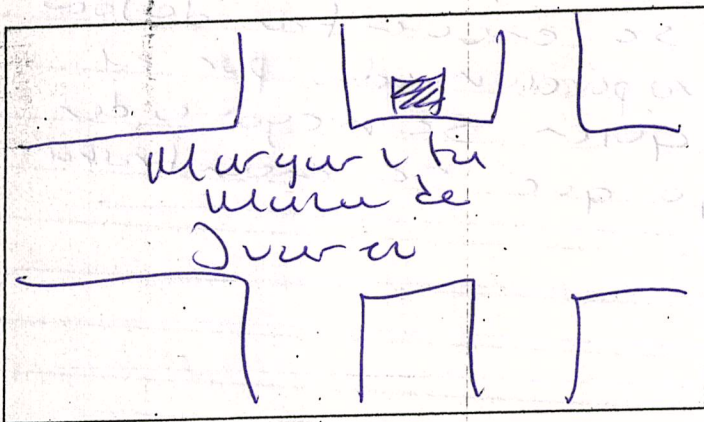 Margarita
Maza de
Juarez